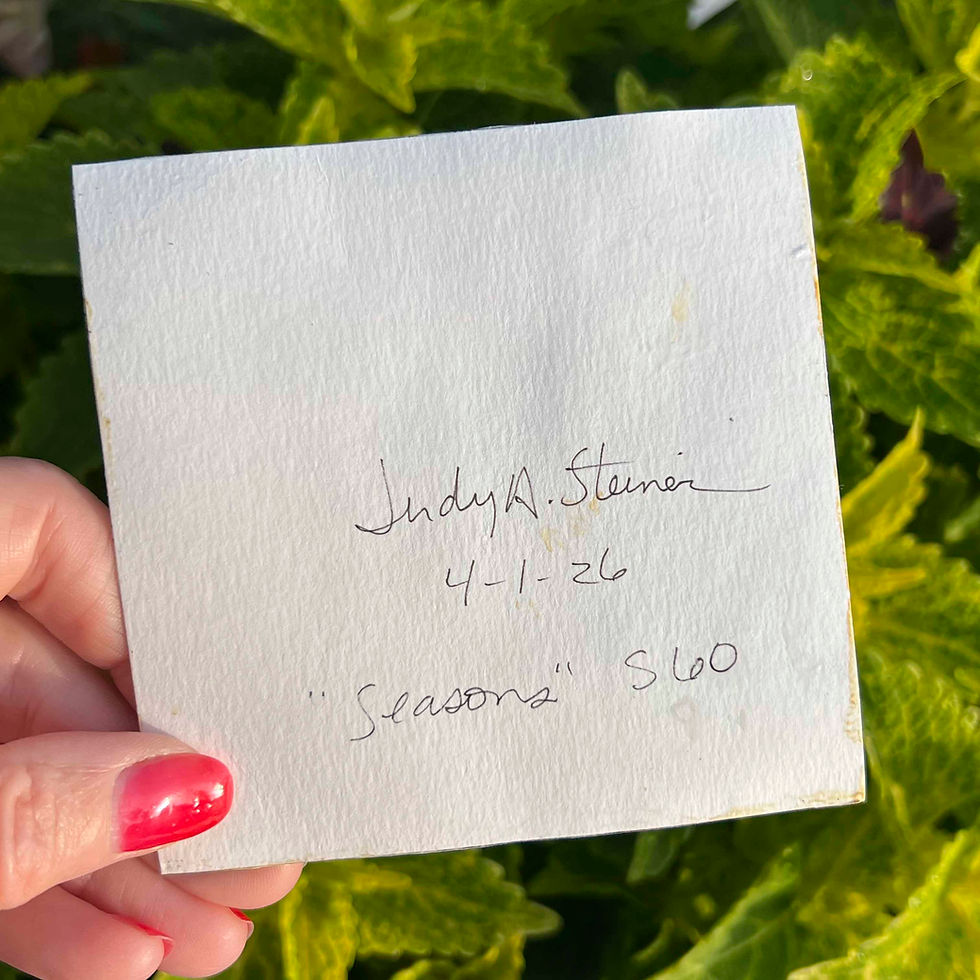 Judy A. Steiner
4-1-26
"Seasons" S60